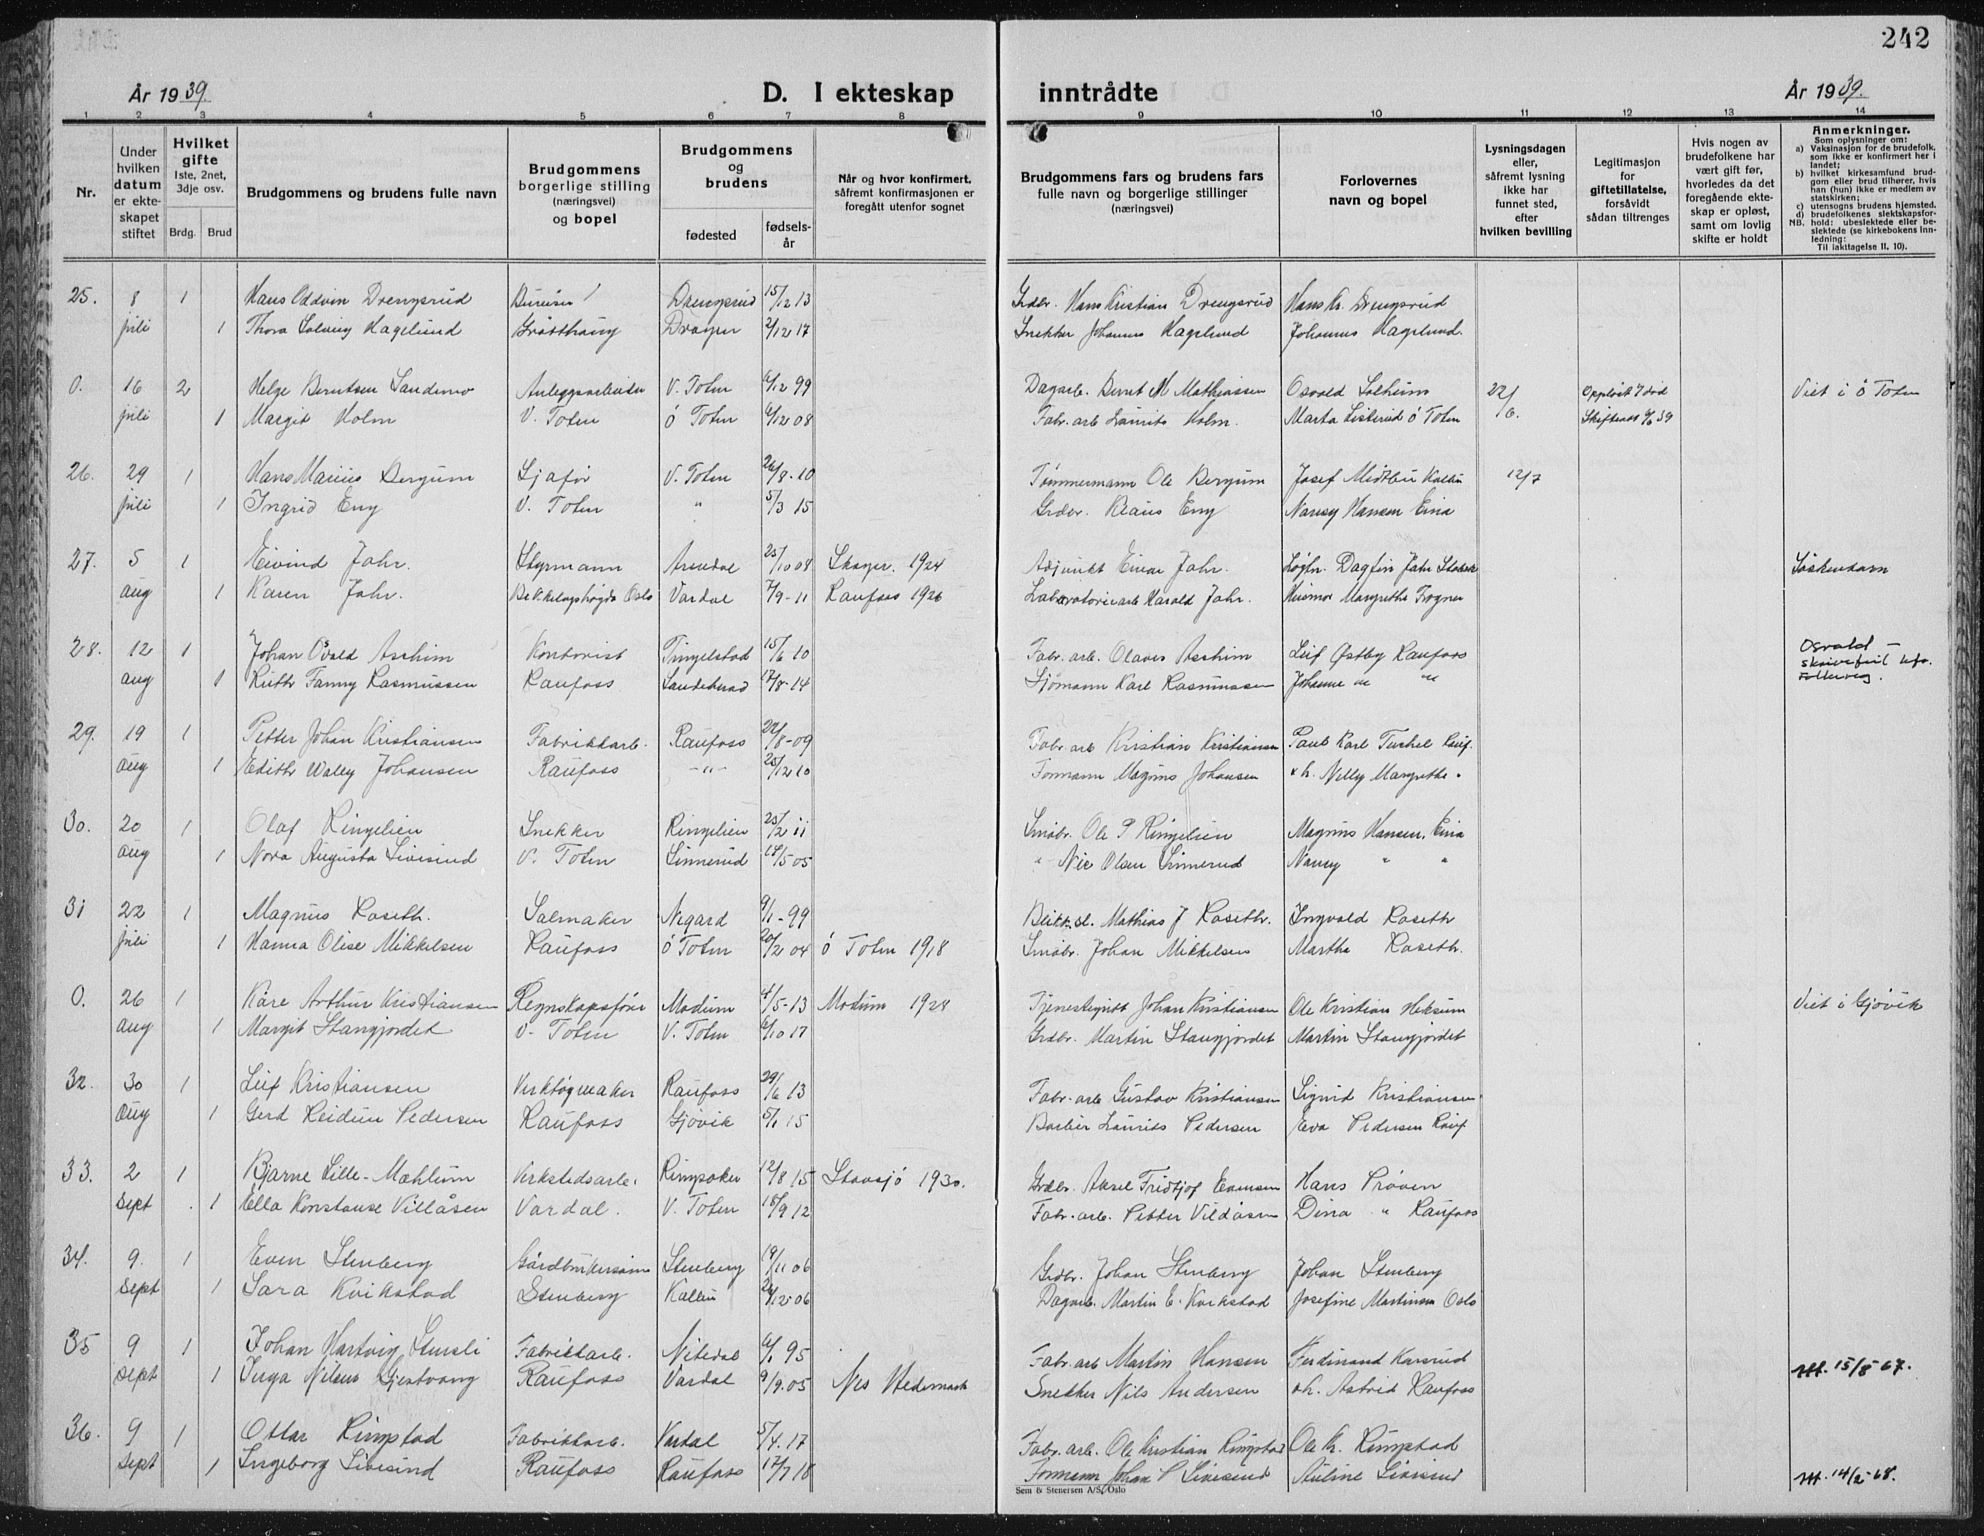 242
År 1939.
D. I ekteskap inntrådte
År 1939.
1 2 3 4 5 6 7 8 9 10 11 12 13 14
Nr.
Under hvilken datum er ekteskapet stiftet
Hvilket gifte
1ste, 2net, 3dje osv.
Brdg. Brud
Brudgommens og brudens fulle navn
Brudgommens borgerlige stilling (næringsvei) og bopel
Brudgommens og brudens
fødested
fødselsår
Når og hvor konfirmert, såfremt konfirmasjonen er foregått utenfor sognet
Brudgommens fars og brudens fars fulle navn og borgerlige stillinger (næringsvei)
Forlovernes navn og bopel
Lysningsdagen eller, såfremt lysning ikke har funnet sted, efter hvilken bevilling
Legitimasjon for giftetillatelse, forsåvidt sådan tiltrenges
Hvis nogen av brudefolkene har vært gift før, hvorledes da det foregående ekteskap er opløst, samt om lovlig skifte er holdt
Anmerkninger.
Som oplysninger om:
a) Vaksinasjon for de brudefolk, som ikke er konfirmert her i landet;
b) hvilket kirkesamfund brudgom eller brud tilhører, hvis han (hun) ikke er medlem av statskirken;
c) utensogns brudens hjemsted.
d) brudefolkenes slektskapsforhold: ubeslektede eller beslektede (se kirkebokens innledning:
NB.
Til iakttagelse II, 10).
25. 8 1 Hans Oddvin Drengsrud Drengsrud 15/12 13 Grdbr. Hans Kristian Drengsrud Hans Kr. Drengsrud
juli 1 Thora Solveig Hagelund 2/12 17 Snekker Johannes Hagelund Johannes Hagelund.
O. 16 2 Helge Berntsen Sandemo Anleggsarbeider V. Toten 6/12 99 Dagarb. Bernt M Mathiassen Osvald Solheim 22/6. Oppløst v død Viet i Ø Toten
juli 1 Margit Holm V. Toten Ø Toten 6/12 08 Fabr. arb Laurits Holm. Marta Listerud Ø Toten
26. 29 1 Hans Marius Bergum Sjafør V. Toten 26/8-10 Tømmermann Ole Bergum Josef Midtlien Kolbu 12/7
juli 1 Ingrid Eny V. Toten " 5/3 15 Grdbr. Eny Nancy Hansen Eina
27. 5 1 Eivind Jahr. Styrmann Arendal 25/10 08 1924 Adjunkt Einar Jahr. Dagfin Jahr Søskenbarn
aug 1 Karen Jahr. Bekkelagshøgda Oslo Vardal 7/9-11 Raufoss 1926 Laboratoriearb Harald Jahr. Margrethe Trogner
28. 12 1 Johan Osvald Aschim Kontorist Tingelstad 15/6 10 Fabr. arb. Olaves Aschim Leif Østby Raufoss Osvald –
skrivefeil
aug 1 Ruth Fanny Rasmussen Raufoss Sandebrud 17/8-14 Sjømann Karl Rasmussen Johanne " "
29. 19 1 Petter Johan Kristiansen Fabrikkarb. Raufoss 22/8-09 Fabr. arb Kristian Kristiansen Paul Karl Tuchel Rauf.
aug 1 Edith Wally Johansen Raufoss –"– 25/12 10 Formann Magnus Johansen Nelly Margrethe "
30. 20 1 Olaf Ringelien Snekker Ringelien 25/2 11 Småbr. Ole P Ringelien Magnus Hansen, Eina
aug 1 Nora Augusta Sivesind V. Toten Linnerud 18/5 05 " Nic Olsen Linnerud Nancy " "
31 22 1 Magnus Roseth. Salmaker Nygard 9/1-99 Blikksl. Mathias J Roseth. Ingvald Roseth
juli 1 Hanna Olise Mikkelsen Raufoss Ø Toten 20/2 04 Ø Toten 1918 Småbr. Johan Mikkelsen Martha Roseth.
O. 26 1 Kåre Arthur Kristiansen Regnskapsfører Modum 4/5-13 Modum 1928 Johan Kristiansen Ole Kristian Heksum Viet i Gjøvik
aug 1 Margit Stangjordet V. Toten V. Toten 6/10 17 Grdbr. Martin Stangjordet Martin Stangjordet
32. 30 1 Leif Kristiansen Verktøymaker Raufoss 29/6 13 Fabr. arb Gustav Kristiansen Sigrid Kristiansen
aug 1 Gerd Reidun Pedersen Raufoss Gjøvik 5/1 15 Barber Laurits Pedersen Eva Pedersen Rauf
33. 2 1 Bjarne Lille-Mæhlum Verkstedsarb. Ringsaker 12/8 15 Stavsjø 1930. Grdbr. Aksel Fridtjof Evensen Hans Prøven
sept 1 Ella Konstanse Villåsen Vardal. V. Toten 15/9 12 Fabr. arb. Petter Vildåsen Dina " Raufoss
34. 9. 1 Even Stenberg Gårdbrukersønn Stenberg 19/11 06 Grdbr. Johan Stenberg Johan Stenberg
sept 1 Sara Kvikstad Stenberg Kolbu 26/12-06 Dagarb. Martin E. Kvikstad Josefine Martinsen Oslo
35 9 1 Johan Hartvig Stensli Fabrikkarb. Nitedal 6/1 95 Fabr. arb Martin Hansen Ferdinand Karsrud
sept 1 Inga Nilsen Gjestvang Raufoss Vardal 9/9.05 Nes Hedemark Snekker Nils Andersen Astrid Raufoss 15/8 67.
36. 9 1 Ottar Ringstad Fabrikkarb. Vardal 5/4.17 Fabr. arb. Ole Kristian Ringstad Ole Kr. Ringstad
sept 1 Ingeborg Sivesind Raufoss Raufoss 17/7 18 Formann Johan P Sivesind Auline Sivesind 14/2-68.
Sem & Stenersen A/S, Oslo